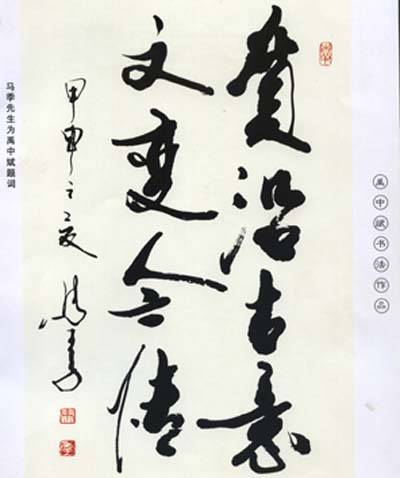 禹中斌书法作品
质沿古意
文变今情
甲申之夏 马季
马季先生为禹中斌题词